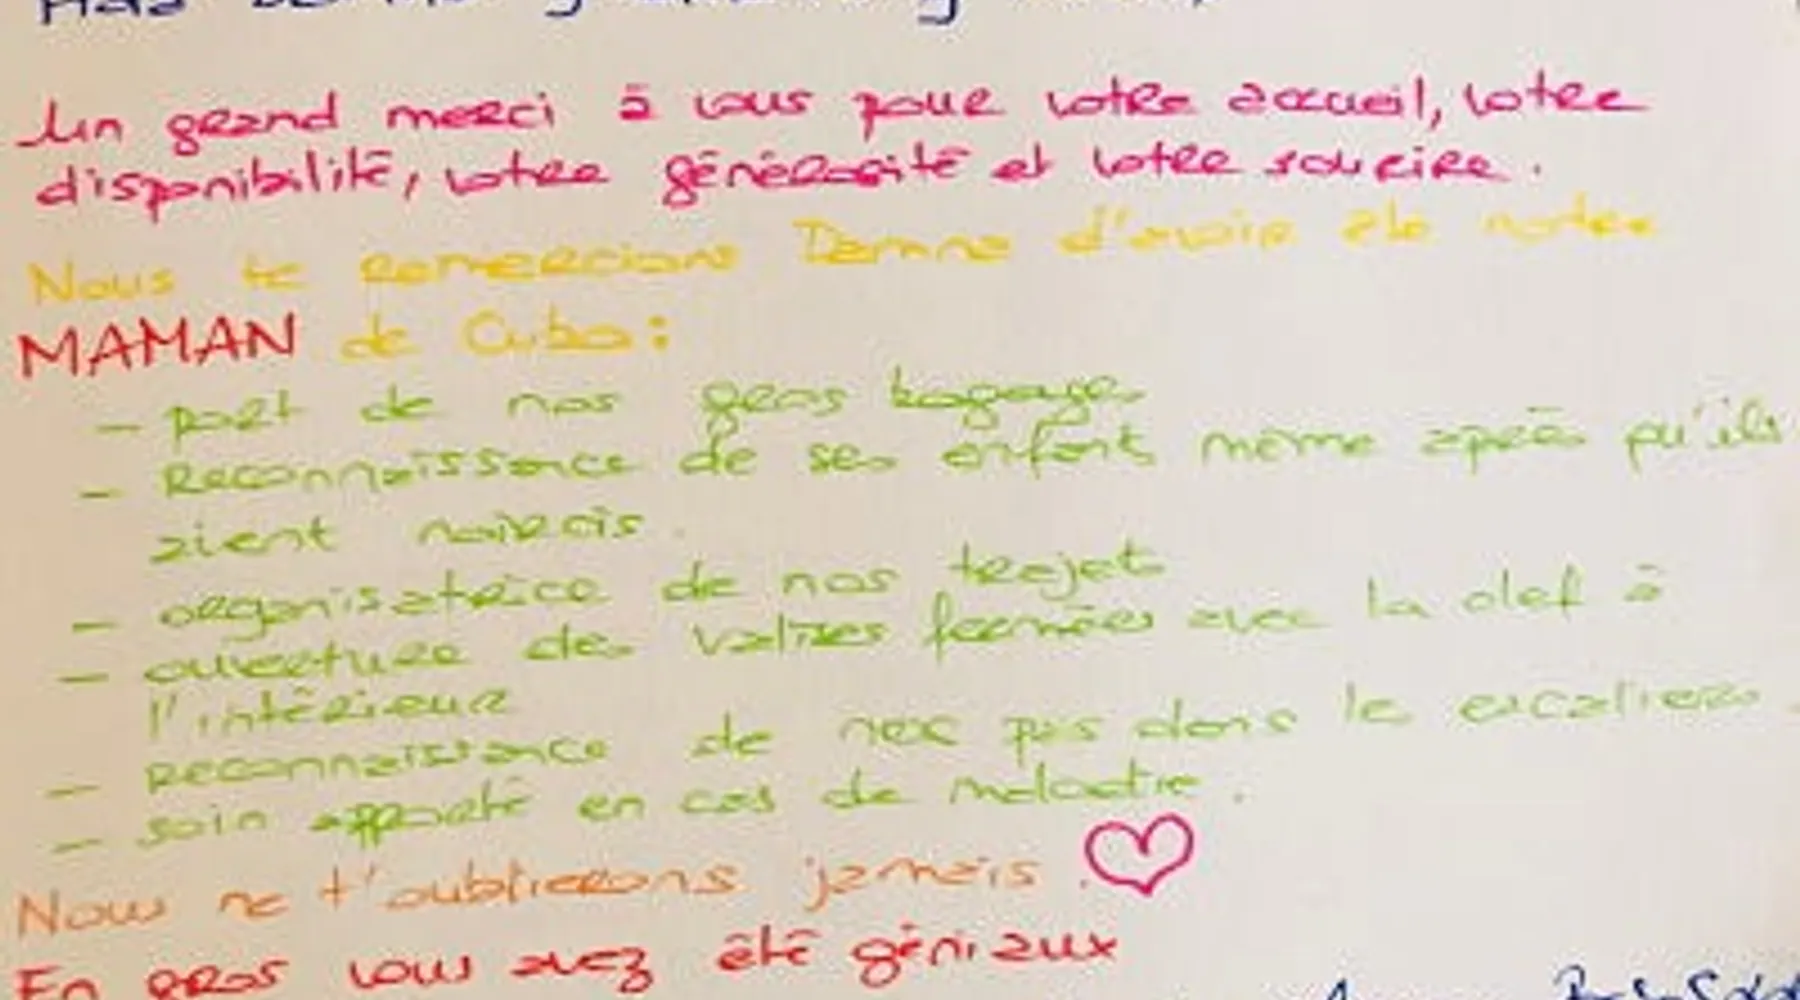 Un grand merci à vous pour votre accueil, votre
disponibilité, votre générosité et votre sourire.
Nous te remercions d'avoir été notre
MAMAN de Cuba :
- port de nos gros bagages
- Reconnaissance de ses enfants même après qu'ils
aient noircis.
- organisatrice de nos trajet
- ouverture des valises fermées avec la clef à
l'intérieur
- reconnaissance de nos pas dans les escaliers.
- soin apporté en cas de maladie.
Nous ne t'oublierons jamais.
En gros vous avez été géniaux